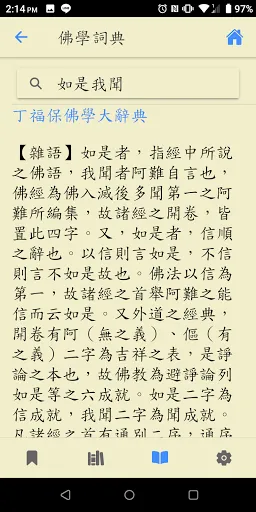 2:14 PM 97%
佛學詞典
如是我聞
丁福保佛學大辭典
【雜語】如是者，指經中所說
之佛語，我聞者阿難自言也，
佛經為佛入滅後多聞第一之阿
難所編集，故諸經之開卷，皆
置此四字。又，如是者，信順
之辭也。以信則言如是，不信
則言不如是故也。佛法以信為
第一，故諸經之首舉阿難之能
信而云如是。又外道之經典，
開卷有阿（無之義）、傴（有
之義）二字為吉祥之表，是諍
論之本也，故佛教為避諍論列
如是等之六成就。如是二字為
信成就，我聞二字為聞成就。
凡諸經之首有通別二序，通序